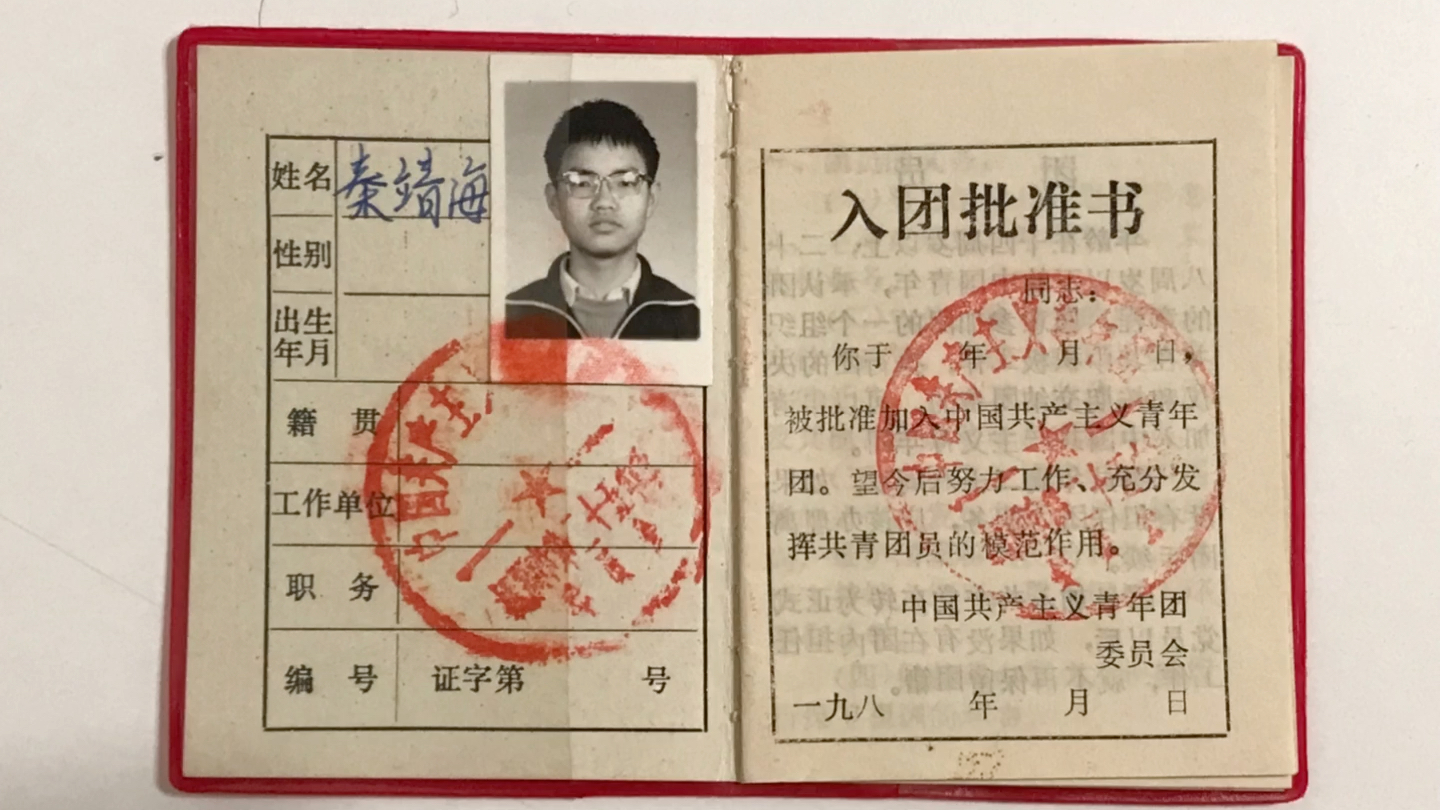 姓名 秦靖海
性别
出生
年月
籍 贯
工作单位
职 务
编 号 证字第 号
入团批准书
同志：
你于 年 月 日，
被批准加入中国共产主义青年
团。望今后努力工作、充分发
挥共青团员的模范作用。
中国共产主义青年团
委员会
一九八 年 月 日